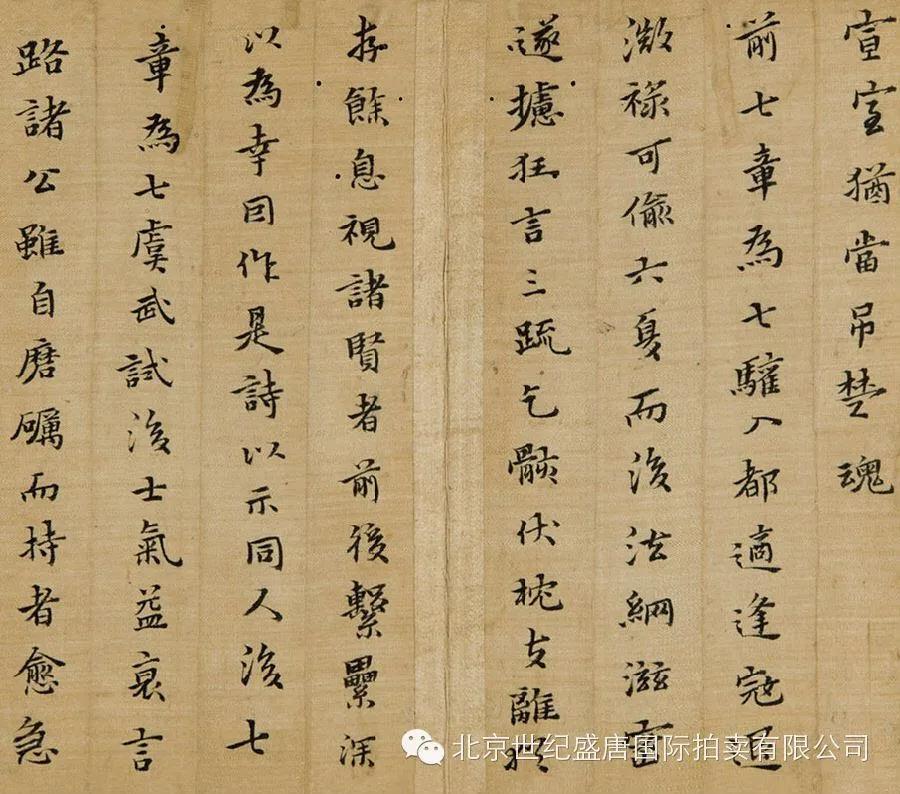 宣室猶當吊楚魂
前七章為七驩入都適逢寇退
微祿可偷六夏而後法網滋密
遂攄狂言三疏乞骸伏枕支離
存餘息視諸賢者前後繫纍深
以為幸因作是詩以示同人後七
章為七虞武試後士氣益衰言
路諸公雖自磨礪而持者愈急
北京世纪盛唐国际拍卖有限公司